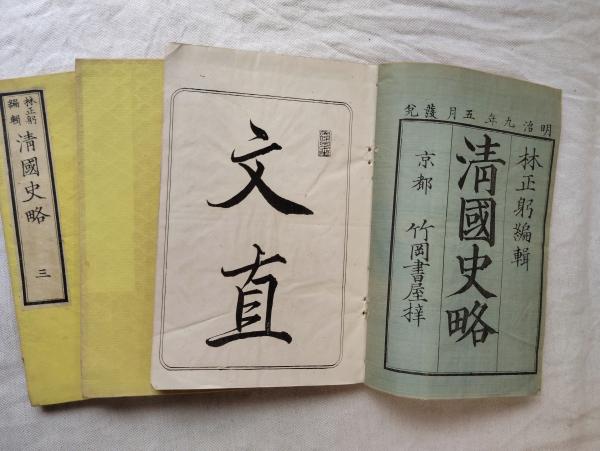 明治九年五月發兌
林正躬編輯
清國史略
京都 竹岡書屋梓
文直
林正躬
編輯
清國史略
三